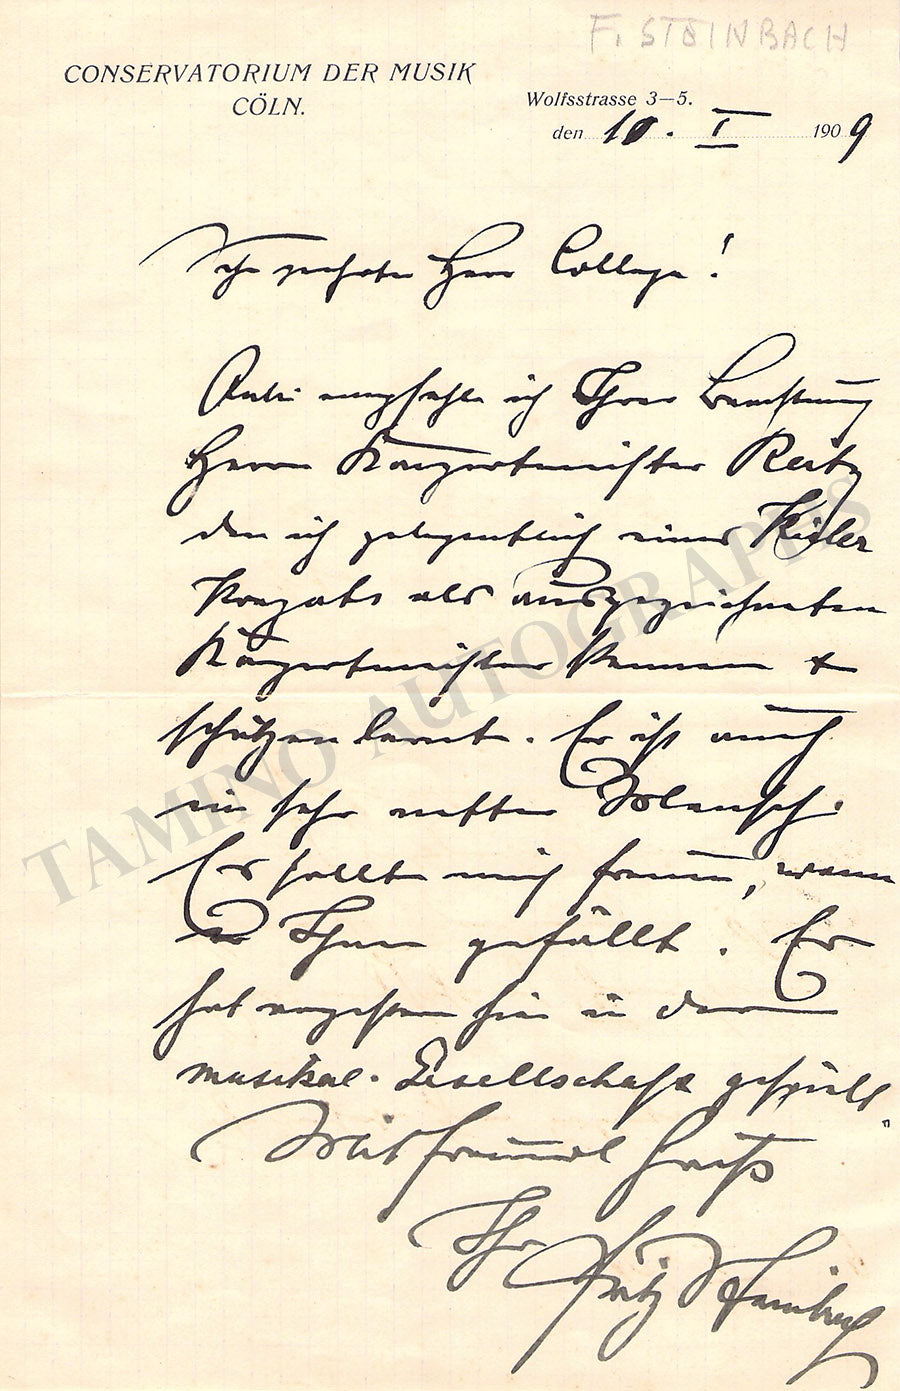 F. STEINBACH
CONSERVATORIUM DER MUSIK
CÖLN.
Wolfsstrasse 3—5.
den 10. I 1909
Sehr geehrter Herr College!
empfehle ich Ihrer Beachtung
Herrn Konzertmeister Reitz
den ich gelegentlich eines Kieler
Konzerts als ausgezeichneten
Konzertmeister kennen +
schätzen lernte. Er ist auch
ein sehr netter Mensch.
Er sollte mich freuen, wenn
er Ihnen gefällt. Er
hat gestern hier in der
musikal. Gesellschaft gespielt.
Mit freundl Gruß
Ihr Fritz Steinbach
TAMINO AUTOGRAPHS